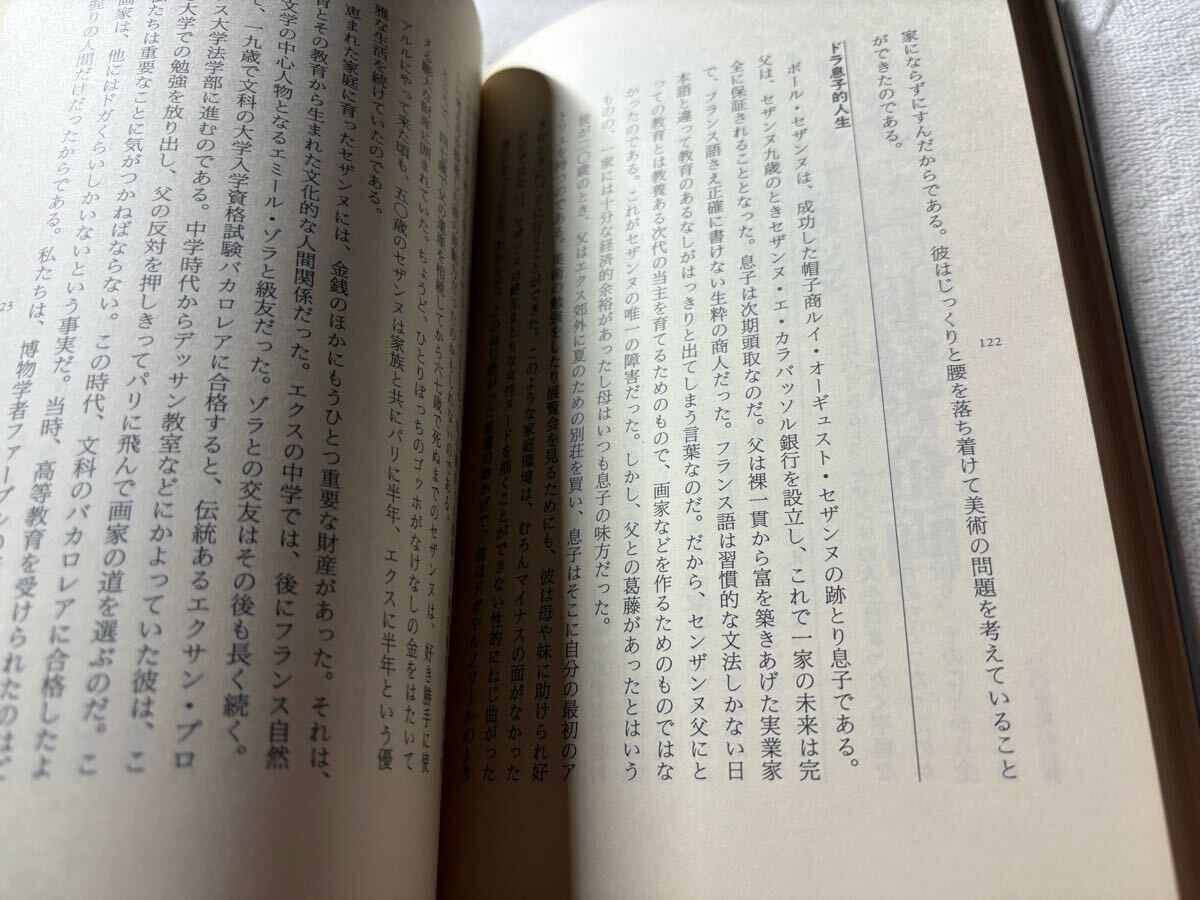 122
家にならずにすんだからである。彼はじっくりと腰を落ち着けて美術の問題を考えていること
ができたのである。
ドラ息子的人生
ポール・セザンヌは、成功した帽子商ルイ・オーギュスト・セザンヌの跡とり息子である。
父は、セザンヌ九歳のときセザンヌ・エ・カラバッソル銀行を設立し、これで一家の未来は完
全に保証されることとなった。息子は次期頭取なのだ。父は裸一貫から富を築きあげた実業家
で、フランス語さえ正確に書けない生粋の商人だった。フランス語は習慣的な文法しかない日
本語と違って教育のあるなしがはっきりと出てしまう言葉なのだ。だから、センザンヌ父にと
っての教育とは教養ある次代の当主を育てるためのもので、画家などを作るためのものではな
かったのである。これがセザンヌの唯一の障害だった。しかし、父との葛藤があったとはいう
ものの、一家には十分な経済的余裕があったし母はいつも息子の味方だった。
彼が二〇歳のとき、父はエクス郊外に夏のための別荘を買い、息子はそこに自分の最初のア
トリエを構えるのである。美術の勉強をしたり展覧会を見るためにも、彼は母や妹に助けられ好
きなときにパリに行くことができた。このような家庭環境は、むろんマイナスの面がなかった
わけではない。セザンヌは終生まともな女性ヌードを描くことができない性的にねじ曲がった
この感じ曲がった願望のおかげで、彼はドガやルノワールのよう
ところで、四七歳で父の遺産を相続してから六七歳で死ぬまでのセザンヌは、好き勝手に使
える膨大な財産に囲まれていた。ちょうど、ひとりぼっちのゴッホがなけなしの金をはたいて
アルルにやって来た頃も、五〇歳のセザンヌは家族と共にパリに半年、エクスに半年という優
雅な生活を続けていたのである。
恵まれた家庭に育ったセザンヌには、金銭のほかにもうひとつ重要な財産があった。それは、
育とその教育から生まれた文化的な人間関係だった。エクスの中学では、後にフランス自然
文学の中心人物となるエミール・ゾラと級友だった。ゾラとの交友はその後も長く続く。
て、一九歳で文科の大学入学資格試験バカロレアに合格すると、伝統あるエクサン・プロ
ス大学法学部に進むのである。中学時代からデッサン教室などにかよっていた彼は、こ
大学での勉強を放り出し、父の反対を押しきってパリに飛んで画家の道を選ぶのだ。こ
たちは重要なことに気がつかねばならない。この時代、文科のバカロレアに合格したよ
画家は、他にはドガくらいしかいないという事実だ。当時、高等教育を受けられたのはど
握りの人間だけだったからである。私たちは、博物学者ファーブルの
23